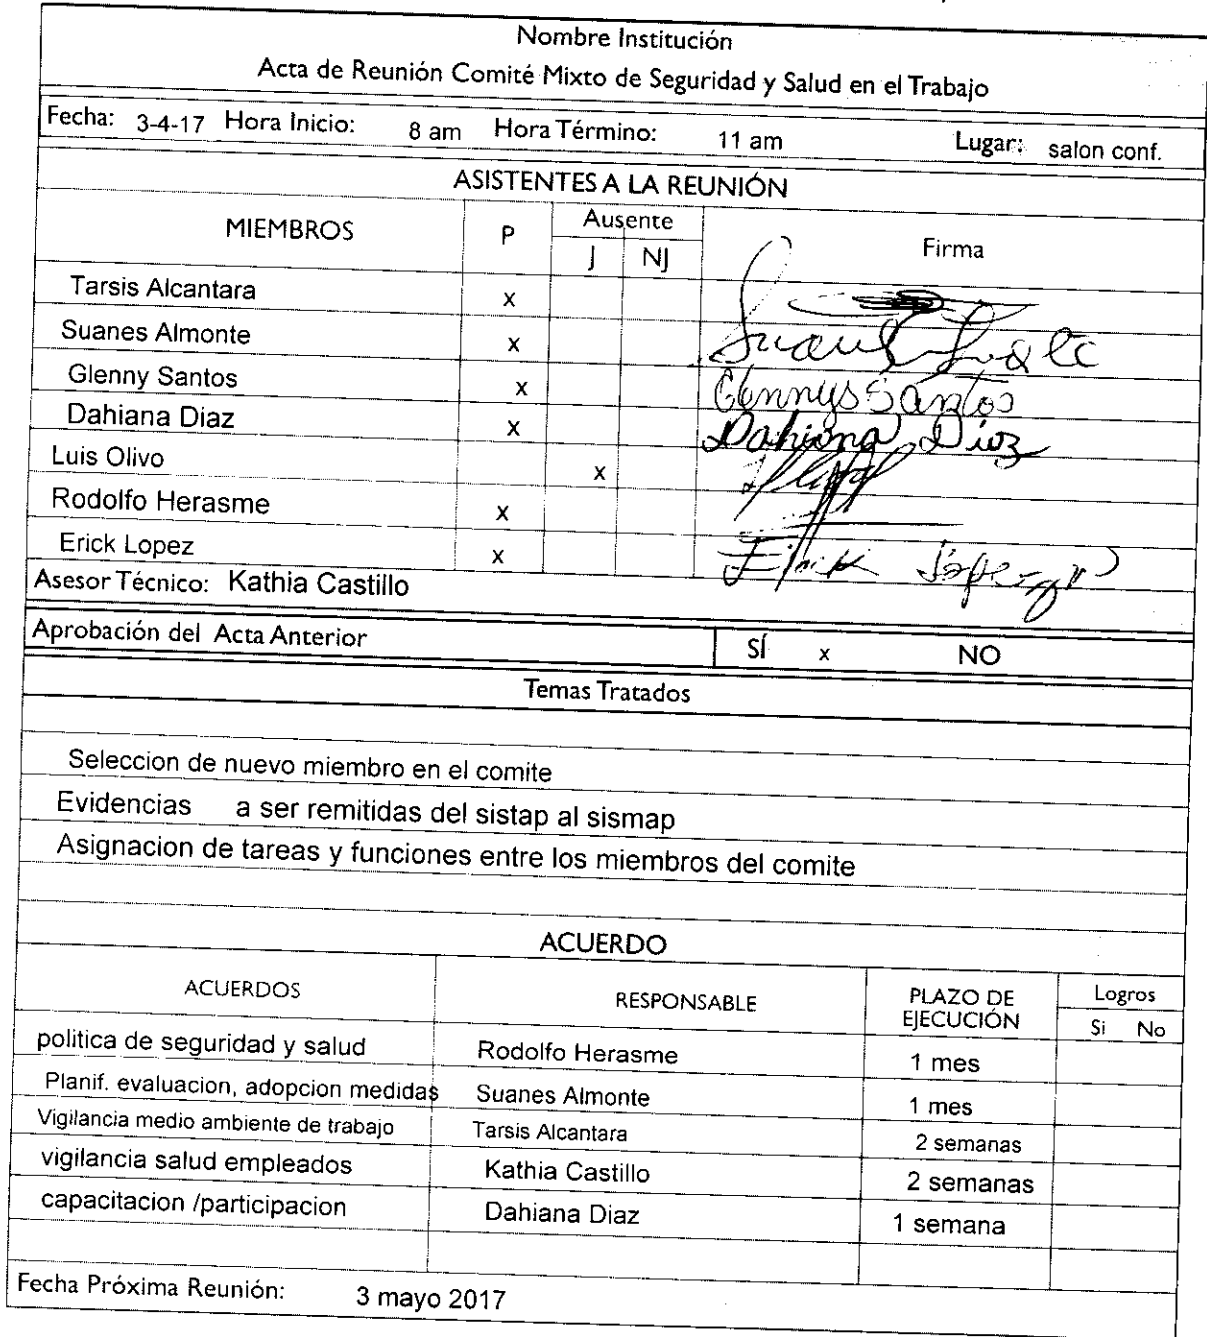 Nombre Institución
Acta de Reunión Comité Mixto de Seguridad y Salud en el Trabajo
Fecha: 3-4-17 Hora Inicio: 8 am Hora Término: 11 am Lugar: salon conf.
ASISTENTES A LA REUNIÓN
MIEMBROS P Ausente Firma
J NJ
Tarsis Alcantara x
Suanes Almonte x
Glenny Santos x Glennys Santos
Dahiana Diaz x Dahiana Diaz
Luis Olivo x
Rodolfo Herasme x
Erick Lopez x Erick López
Asesor Técnico: Kathia Castillo
Aprobación del Acta Anterior SÍ x NO
Temas Tratados
Seleccion de nuevo miembro en el comite
Evidencias a ser remitidas del sistap al sismap
Asignacion de tareas y funciones entre los miembros del comite
ACUERDO
ACUERDOS RESPONSABLE PLAZO DE EJECUCIÓN Logros
Si No
politica de seguridad y salud Rodolfo Herasme 1 mes
Planif. evaluacion, adopcion medidas Suanes Almonte 1 mes
Vigilancia medio ambiente de trabajo Tarsis Alcantara 2 semanas
vigilancia salud empleados Kathia Castillo 2 semanas
capacitacion /participacion Dahiana Diaz 1 semana
Fecha Próxima Reunión: 3 mayo 2017